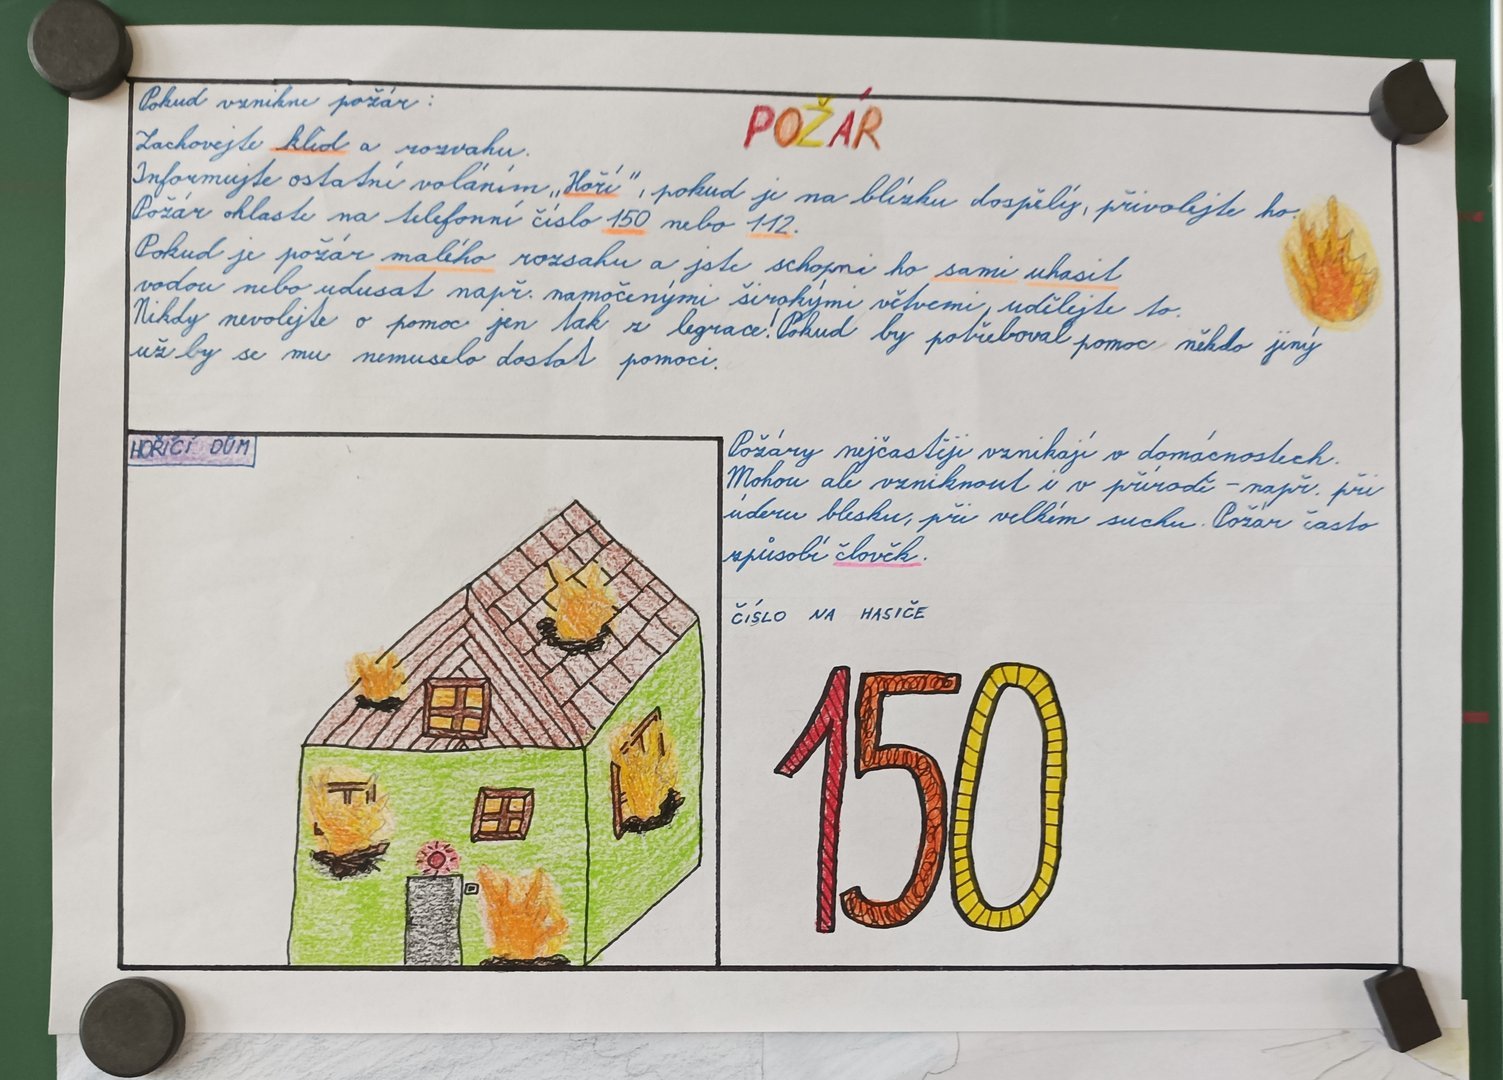 POŽÁR
Pokud vznikne požár:
Zachovejte klid a rozvahu.
Informujte ostatní voláním „Hoří“, pokud je na blízku dospělý, přivolejte ho.
Požár ohlaste na telefonní číslo 150 nebo 112.
Pokud je požár malého rozsahu a jste schopni ho sami uhasit
vodou nebo udusat např. namočenými širokými větvemi, udělejte to.
Nikdy nevolejte o pomoc jen tak z legrace! Pokud by potřeboval pomoc někdo jiný
už by se mu nemuselo dostat pomoci.
HOŘÍCÍ DŮM
Požáry nejčastěji vznikají v domácnostech.
Mohou ale vzniknout i v přírodě - např. při
úderu blesku, při velkém suchu. Požár často
způsobí člověk.
ČÍSLO NA HASIČE
150